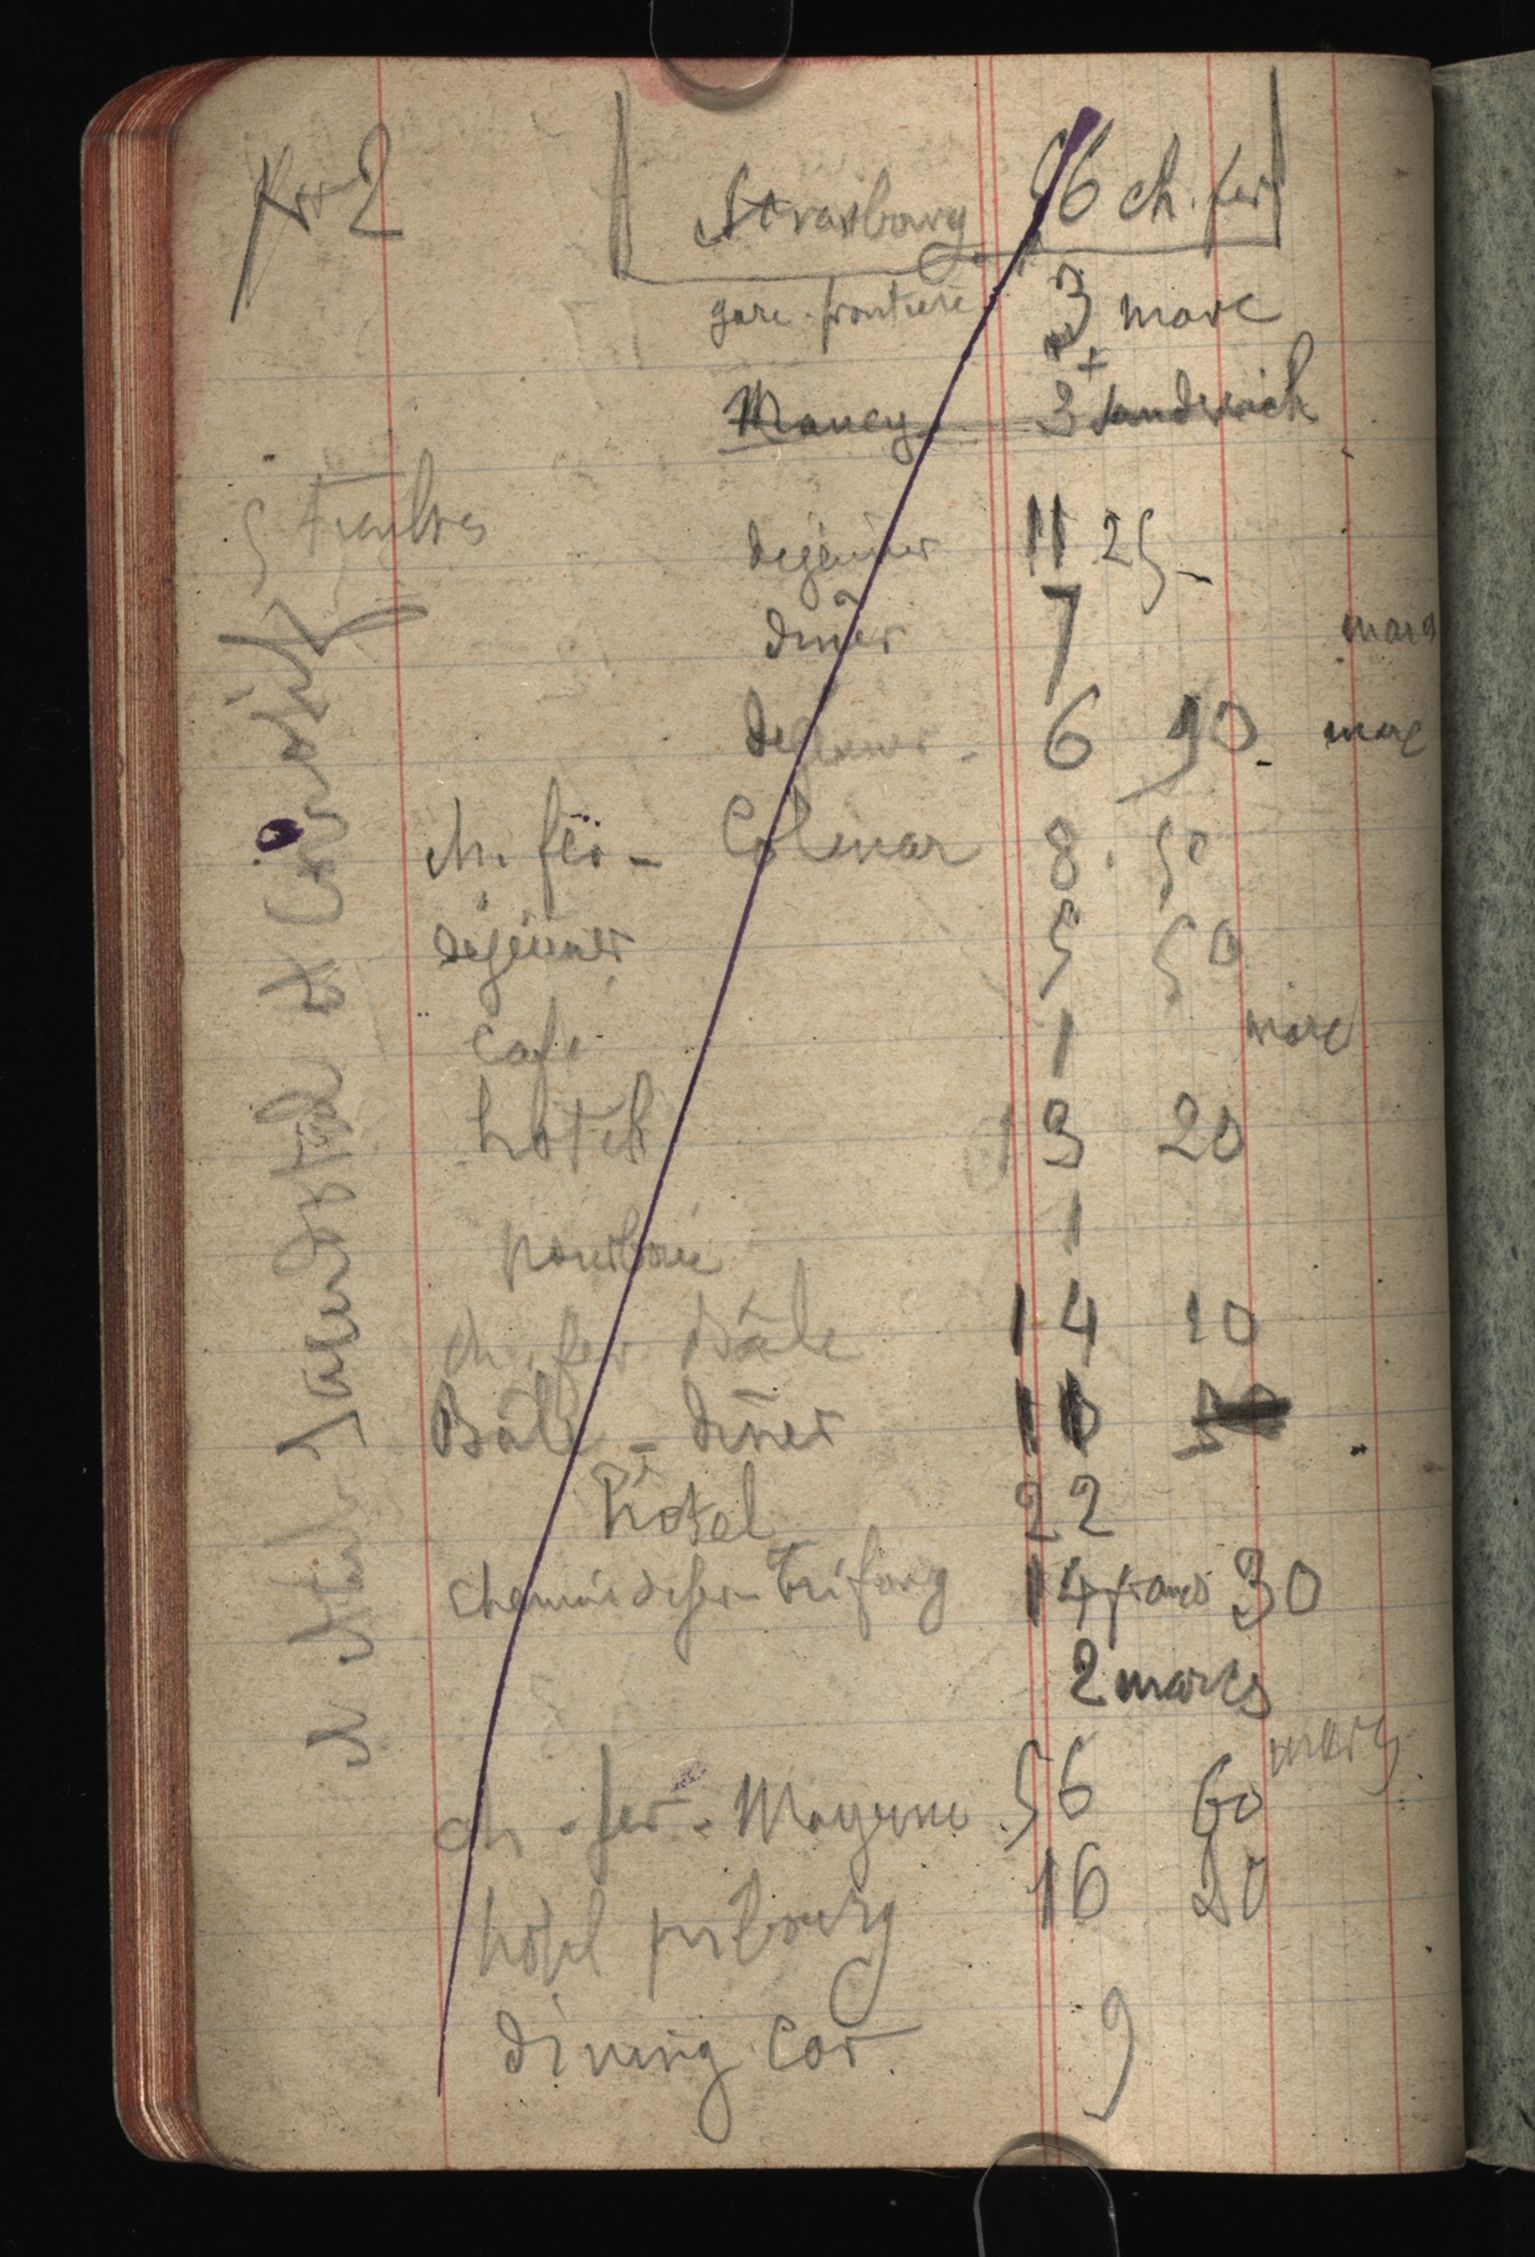 No 2
Strasbourg 56 ch. fer
gare frontiere 3 marc
+
Nancy 3 sandwich
5 timbres
dejeuner 11 25
diner 7 marc
dejeuner - 6 90 marc
ch. fer - Colmar 8. 50
dejeuner 5 50
cafe 1 marc
hotel 13 20
pourboire 1
ch. fer Bâle 14 10
Bâle - diner 11
hotel 22
chemin de fer - 14 francs 30
2 marcs
ch - fer - Mayence 56 60 marcs
hotel fribourg 16 20
dining car 9